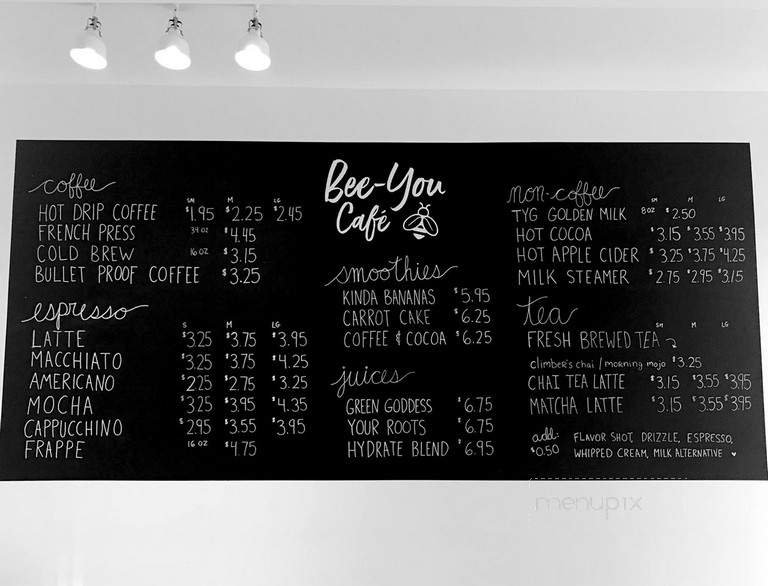 Bee-You
Café
coffee
SM M LG
HOT DRIP COFFEE $1.95 $2.25 $2.45
FRENCH PRESS 34 OZ $4.45
COLD BREW 16 OZ $3.15
BULLET PROOF COFFEE $3.25
espresso
S M LG
LATTE $3.25 $3.75 $3.95
MACCHIATO $3.25 $3.75 $4.25
AMERICANO $2.25 $2.75 $3.25
MOCHA $3.25 $3.95 $4.35
CAPPUCCINO $2.95 $3.55 $3.95
FRAPPE 16 OZ $4.75
smoothies
KINDA BANANAS $5.95
CARROT CAKE $6.25
COFFEE & COCOA $6.25
juices
GREEN GODDESS $6.75
YOUR ROOTS $6.75
HYDRATE BLEND $6.95
non-coffee
SM M LG
TYG GOLDEN MILK 8 OZ $2.50
HOT COCOA $3.15 $3.55 $3.95
HOT APPLE CIDER $3.25 $3.75 $4.25
MILK STEAMER $2.75 $2.95 $3.15
tea
SM M LG
FRESH BREWED TEA
climber's chai / morning mojo $3.25
CHAI TEA LATTE $3.15 $3.55 $3.95
MATCHA LATTE $3.15 $3.55 $3.95
add: FLAVOR SHOT, DRIZZLE, ESPRESSO,
$0.50 WHIPPED CREAM, MILK ALTERNATIVE
menupix